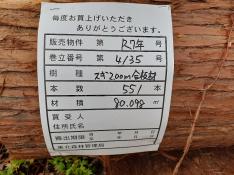 毎度お買上げいただき
ありがとうございます。
販売物件 第 R7年 号
巻立番号 第 4/35 号
樹種 スギ2.00m合板材
本数 551 本
材積 90.098 m³
買受人
住所氏名
搬出期限 年 月 日
東北森林管理局